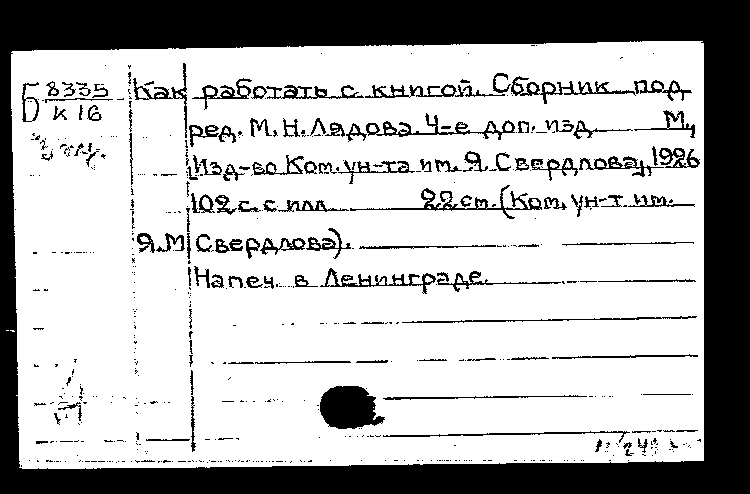 Б 8335
К 16
Как работать с книгой. Сборник под
ред. М. Н. Лядова. 4-е доп. изд. М.,
[Изд-во Ком. ун-та им. Я. Свердлова], 1926
102 с. с илл. 22 см. (Ком. ун-т им.
Я.М Свердлова).
Напеч. в Ленинграде.